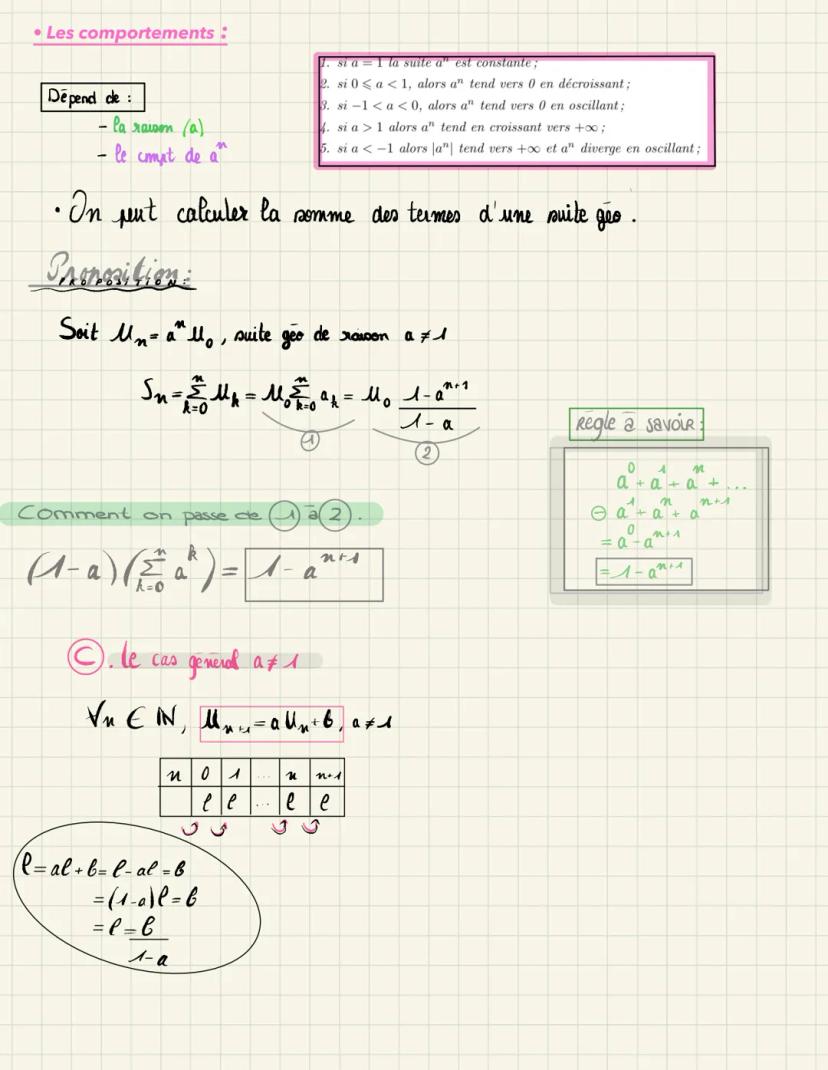 • Les comportements :
1. si a = 1 la suite aⁿ est constante ;
2. si 0 ⩽ a < 1, alors aⁿ tend vers 0 en décroissant ;
3. si −1 < a < 0, alors aⁿ tend vers 0 en oscillant ;
4. si a > 1 alors aⁿ tend en croissant vers +∞ ;
5. si a < −1 alors |aⁿ| tend vers +∞ et aⁿ diverge en oscillant ;
Dépend de :
- la raison (a)
- le cmpt de aⁿ
• On peut calculer la somme des termes d'une suite géo.
Proposition :
PROPOSITION :
Soit Uₙ = aⁿ U₀, suite géo de raison a ≠ 1
Sₙ = Σₖ₌₀ⁿ Uₖ = U₀ Σₖ₌₀ⁿ aₖ = U₀ (1 - aⁿ⁺¹)/(1 - a)
① ②
Règle à savoir :
a⁰ + a¹ + aⁿ + ...
⊖ a¹ + aⁿ + aⁿ⁺¹
= a⁰ - aⁿ⁺¹
= 1 - aⁿ⁺¹
Comment on passe de ① à ②.
(1 - a)(Σₖ₌₀ⁿ aᵏ) = 1 - aⁿ⁺¹
Ⓒ. le cas général a ≠ 1
∀n ∈ ℕ, Uₙ₊₁ = a Uₙ + b, a ≠ 1
n 0 1 ... n n+1
ℓ ℓ ... ℓ ℓ
ℓ = aℓ + b = ℓ - aℓ = b
= (1 - a)ℓ = b
= ℓ = b/(1 - a)